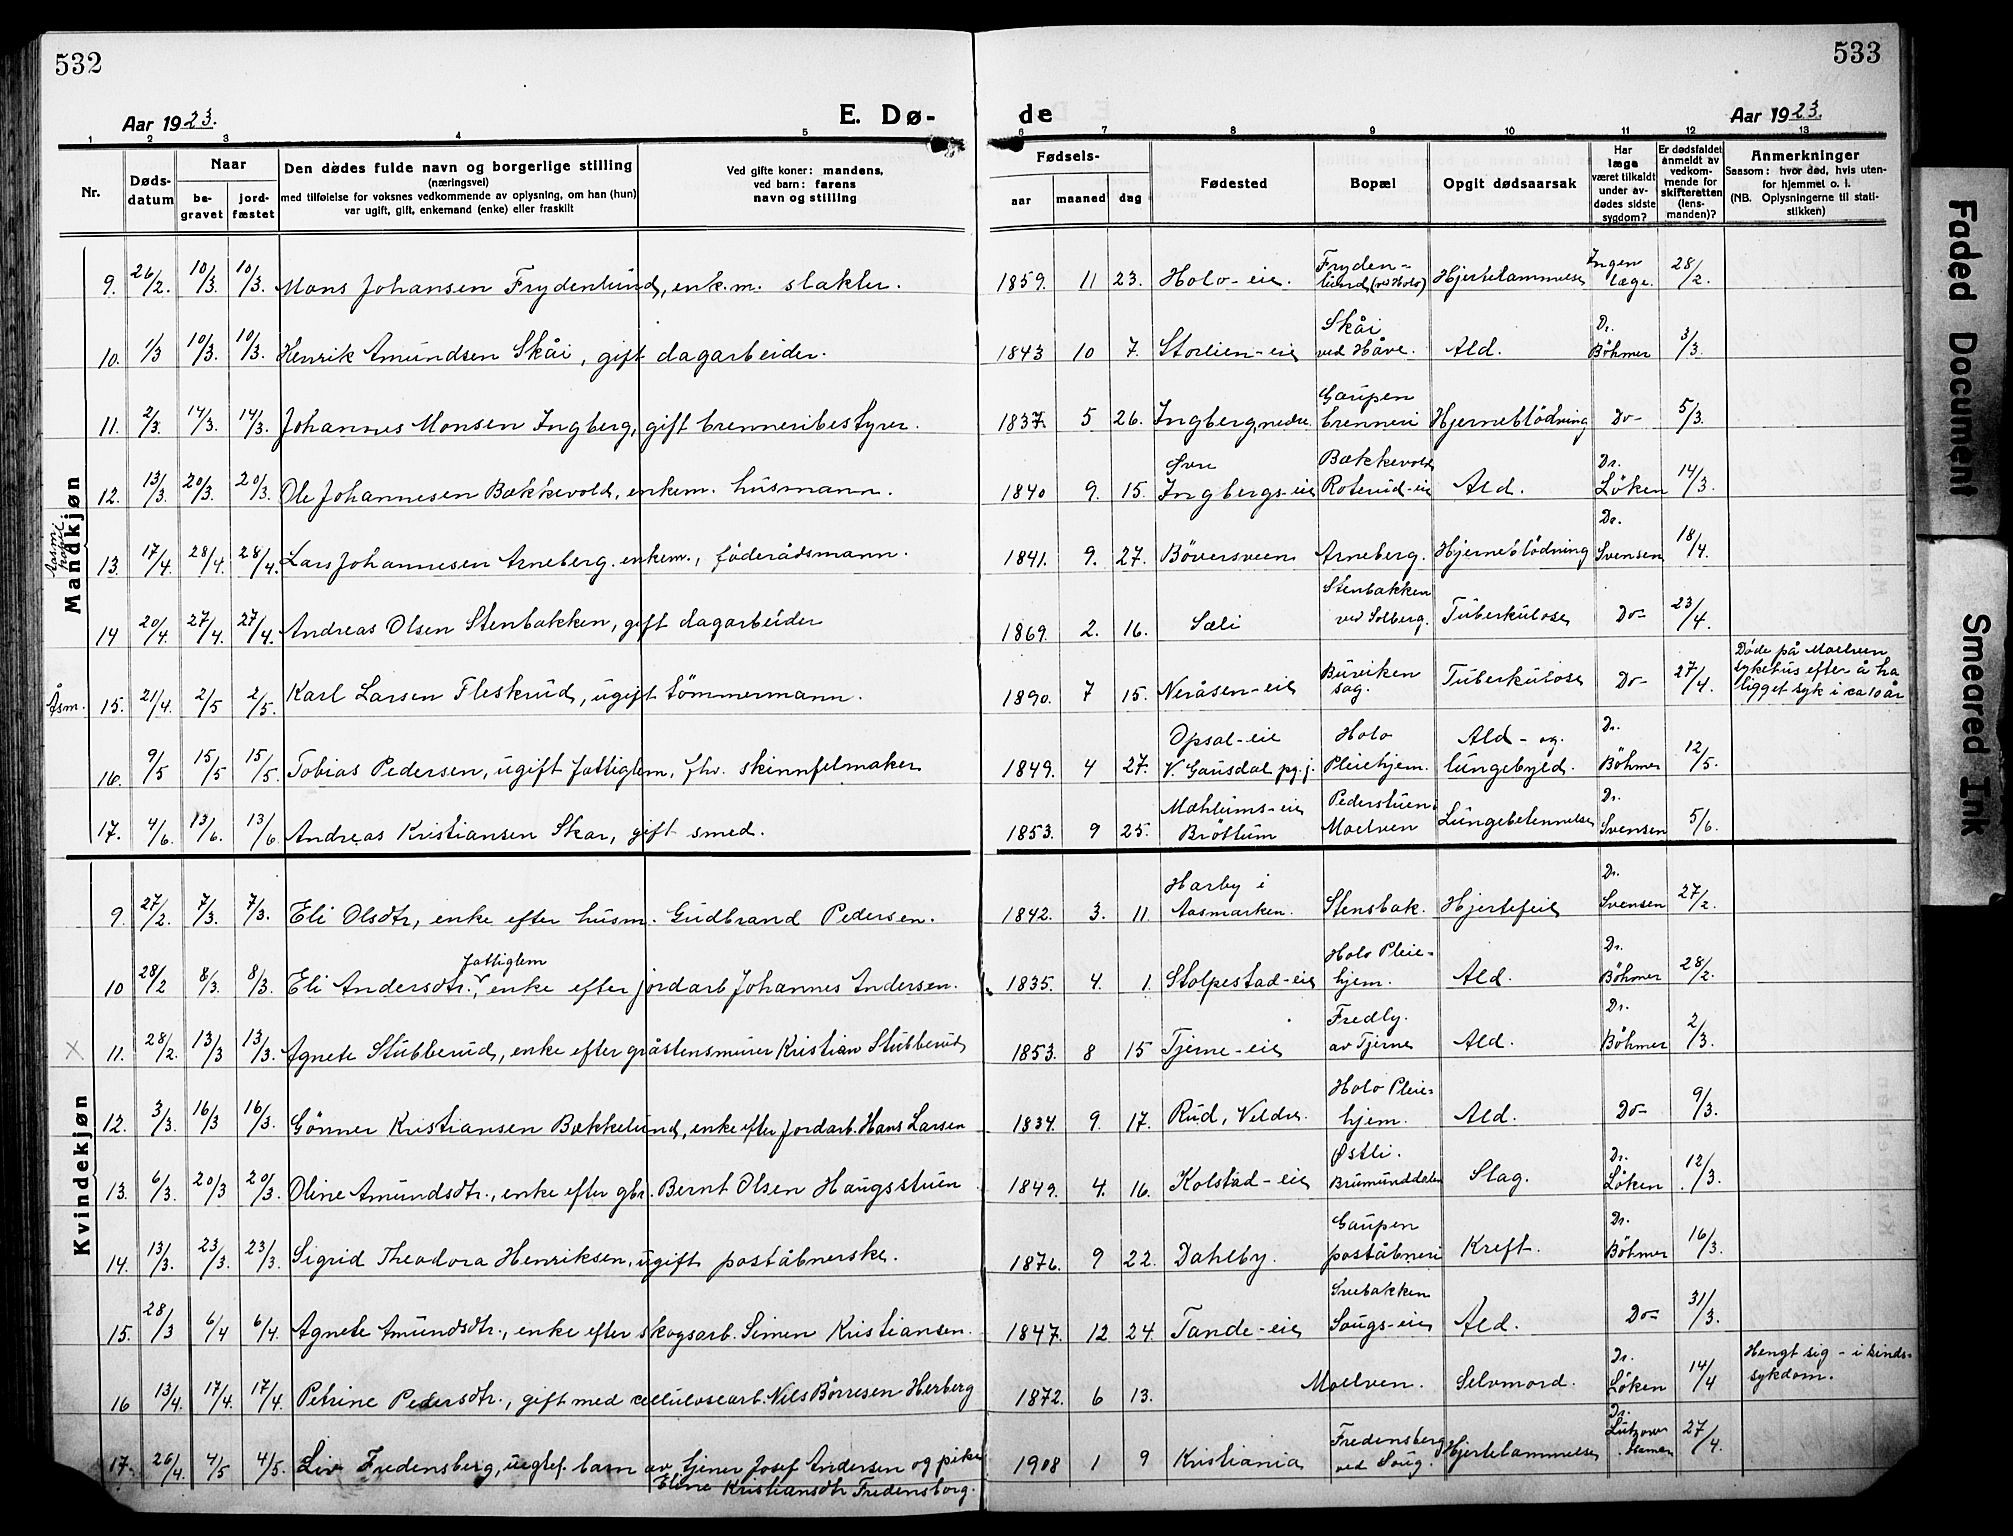 532
533
Aar 1923.
E. Dø-
de
Aar 1923.
1 2 3 4 5 6 7 8 9 10 11 12 13
Nr.
Døds-
datum
Naar
be-
gravet
jord-
fæstet
Den dødes fulde navn og borgerlige stilling
(næringsvei)
med tilføielse for voksnes vedkommende av oplysning, om han (hun)
var ugift, gift, enkemand (enke) eller fraskilt
Ved gifte koner: mandens,
ved barn: farens
navn og stilling
Fødsels-
aar
maaned
dag
Fødested
Bopæl
Opgit dødsaarsak
Har
læge
været tilkaldt
under av-
dødes sidste
sygdom?
Er dødsfaldet
anmeldt av
vedkom-
mende for
skifteretten
(lens-
manden)?
Anmerkninger
Saasom: hvor død, hvis uten-
for hjemmet o. l.
(NB. Oplysningerne til stati-
stikken)
Mandkjøn
9. 26/2. 10/3. 10/3. Mons Johansen Frydenlund, enk.m. slakter. 1859. 11 23. Holo-eie. Fryden-
lund (ved Holo) Hjertelammelse Ingen
læge. 28/2.
10. 1/3 10/3. 10/3. Henrik Amundsen Skåi, gift dagarbeider. 1843 10 7. Storlien-eie Skåi
ved Håve. Ald. Dr.
Böhmer 3/3.
11. 2/3. 14/3. 14/3. Johannes Monsen Ingberg, gift brenneribestyrer. 1837. 5 26. Ingberg nedre Gaupen
brenneri Hjerneblödning Do- 5/3.
12. 13/3. 20/3. 20/3. Ole Johannesen Bækkevold, enkem. husmann. 1840 9. 15. Øvre
Ingbergs-eie Bækkevold
Roterud-eie Ald. Dr.
Löken 14/3.
13. 17/4. 28/4. 28/4. Lars Johannesen Arneberg. enkem., föderådsmann. 1841. 9. 27. Böversveen Arneberg. Hjerneblödning Dr.
Svensen 18/4.
14 20/4. 27/4. 27/4. Andreas Olsen Stenbakken, gift dagarbeider 1869. 2. 16. Sæli Stenbakken
ved Solberg. Tuberkulose Do- 23/4.
Åsm. 15. 21/4. 2/5 2/5. Karl Larsen Fleskrud, ugift tömmermann. 1890. 7 15. Neråsen-eie Buviken
sag. Tuberkulose Do- 27/4. Døde på Moelven
sykehus efter å ha
ligget syk i ca 10 år
16. 9/5 15/5 15/5. Tobias Pedersen, ugift fattiglem, fhv. skinnfelmaker 1849. 4 27. Opsal-eie
V. Gausdal pg. j. Holo
Pleiehjem. Ald-og
lungebyld. Dr.
Böhmer 12/5.
17. 4/6. 13/6. 13/6 Andreas Kristiansen Skar, gift smed. 1853. 9 25. Mæhlums-eie
Bröttum Pederstuen
Moelven Lungebetennelse Dr.
Svensen 5/6.
Kvindekjøn
9. 27/2. 7/3. 7/3. Eli Olsdtr, enke efter husm. Gudbrand Pedersen. 1842. 3. 11. Harby i
Aasmarken. Stensbak. Hjertefeil Dr.
Svensen 27/2.
10 28/2 8/3. 8/3. Eli Andersdtr. fattiglem, enke efter jordarb Johannes Andersen. 1835. 4. 1. Stolpestad-eie Holo Pleie-
hjem. Ald. Dr.
Böhmer 28/2.
X 11. 28/2. 13/3 13/3. Agnete Stubberud, enke efter gråstensmurer Kristian Stubberud 1853. 8 15 Tjerne-eie Fredly.
av Tjerne Ald. Dr.
Böhmer 2/3.
12. 3/3. 16/3 16/3. Gönner Kristiansen Bækkelund, enke efter Jordarb. Hans Larsen 1834. 9. 17. Rud, Veldre Holo Pleie-
hjem. Ald. Do- 9/3.
13. 6/3. 20/3 20/3. Oline Amundsdtr., enke efter gbr. Bernt Olsen Haugsstuen 1849. 4. 16. Kolstad-eie Østli.
Brumunddalen Slag. Dr.
Löken 12/3.
14. 13/3. 23/3. 23/3. Sigrid Theodora Henriksen, ugift poståbnerske. 1876. 9 22. Dahlby. Gaupen
poståbneri Kreft. Dr.
Böhmer 16/3.
15. 28/3 6/4 6/4. Agnete Amundsdtr., enke efter skogsarb. Simen Kristiansen. 1847. 12 24. Tande-eie Svebakken
Sougs-eie Ald. Do- 31/3.
16 13/4. 17/4. 17/4. Petrine Pedersdtr., gift med cellulosearb. Nils Börresen Herberg 1872. 6 13. Moelven. Selvmord. Dr.
Löken 14/4 Hengt sig - i sinds-
sykdom.
17. 26/4. 4/5 4/5. Liv Fredensberg, uegtef. barn av tjener Josef Andersen og pike
Eline Kristiansdtr Fredensborg. 1908 1 9 Kristiania Fredensberg
ved Soug. Hjertelammelse Dr.
Lützow
Hamar 27/4.
Faded Document
Smeared Ink